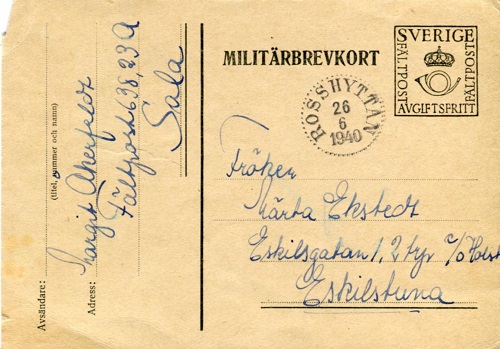 MILITÄRBREVKORT
SVERIGE
FÄLTPOST
FÄLTPOST
AVGIFTSFRITT
ROSSHYTTAN
26
6
1940
Fröken
Märta Ekstedt
Eskilsgatan 1, 2 tr c/o Holst
Eskilstuna
Avsändare: Margit Åkerfeldt
(titel, nummer och namn)
Adress: Fältpost 638, 23 A
Sala